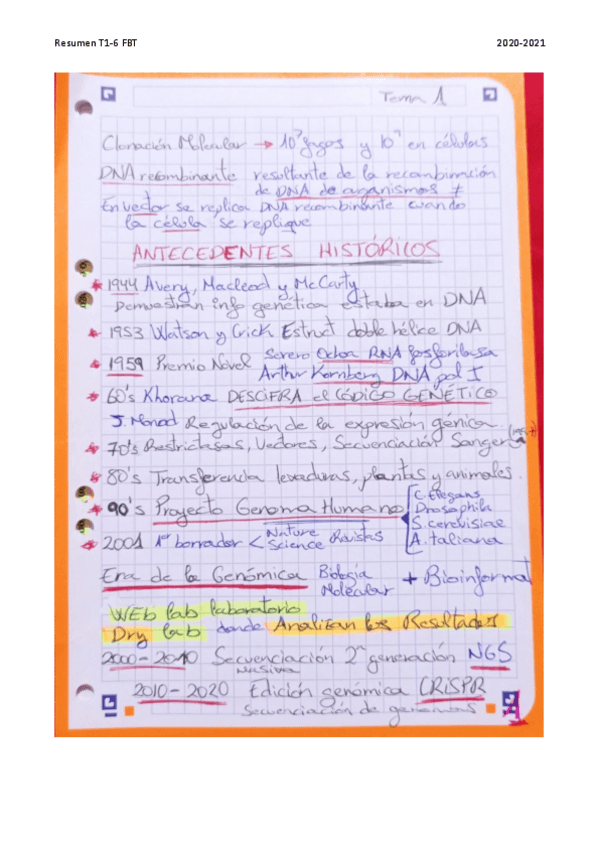 Resumen T1-6 FBT 2020-2021
Tema 1
Clonación Molecular → 10⁷ fagos y 10⁹ en células
DNA recombinante resultante de la recombinación
de DNA de organismos ≠
En vector se replica DNA recombinante cuando
la célula se replique
ANTECEDENTES HISTÓRICOS
* 1944 Avery, Macleod y McCarty
Demuestran info genética estaba en DNA
* 1953 Watson y Crick Estruct doble hélice DNA
* 1959 Premio Novel Severo Ochoa RNA fosforilasa
Arthur Kornberg DNA pol I
* 60's Khorana DESCIFRA el CÓDIGO GENÉTICO
J. Monod Regulación de la expresión génica.
* 70's Restrictasas, Vectores, Secuenciación Sanger
* 80's Transferencia levaduras, plantas y animales.
* 90's Proyecto Genoma Humano
C. Elegans
Drosophila
S. cerevisiae
A. taliana
* 2001 1er borrador < Nature Science Revistas
Era de la Genómica Biología Molecular + Bioinformat
WEb lab laboratorio
Dry lab donde Analizan los Resultados
2000-2010 Secuenciación 2ª generación NGS
masiva
2010-2020 Edición genómica CRISPR
secuenciación de genomas
1